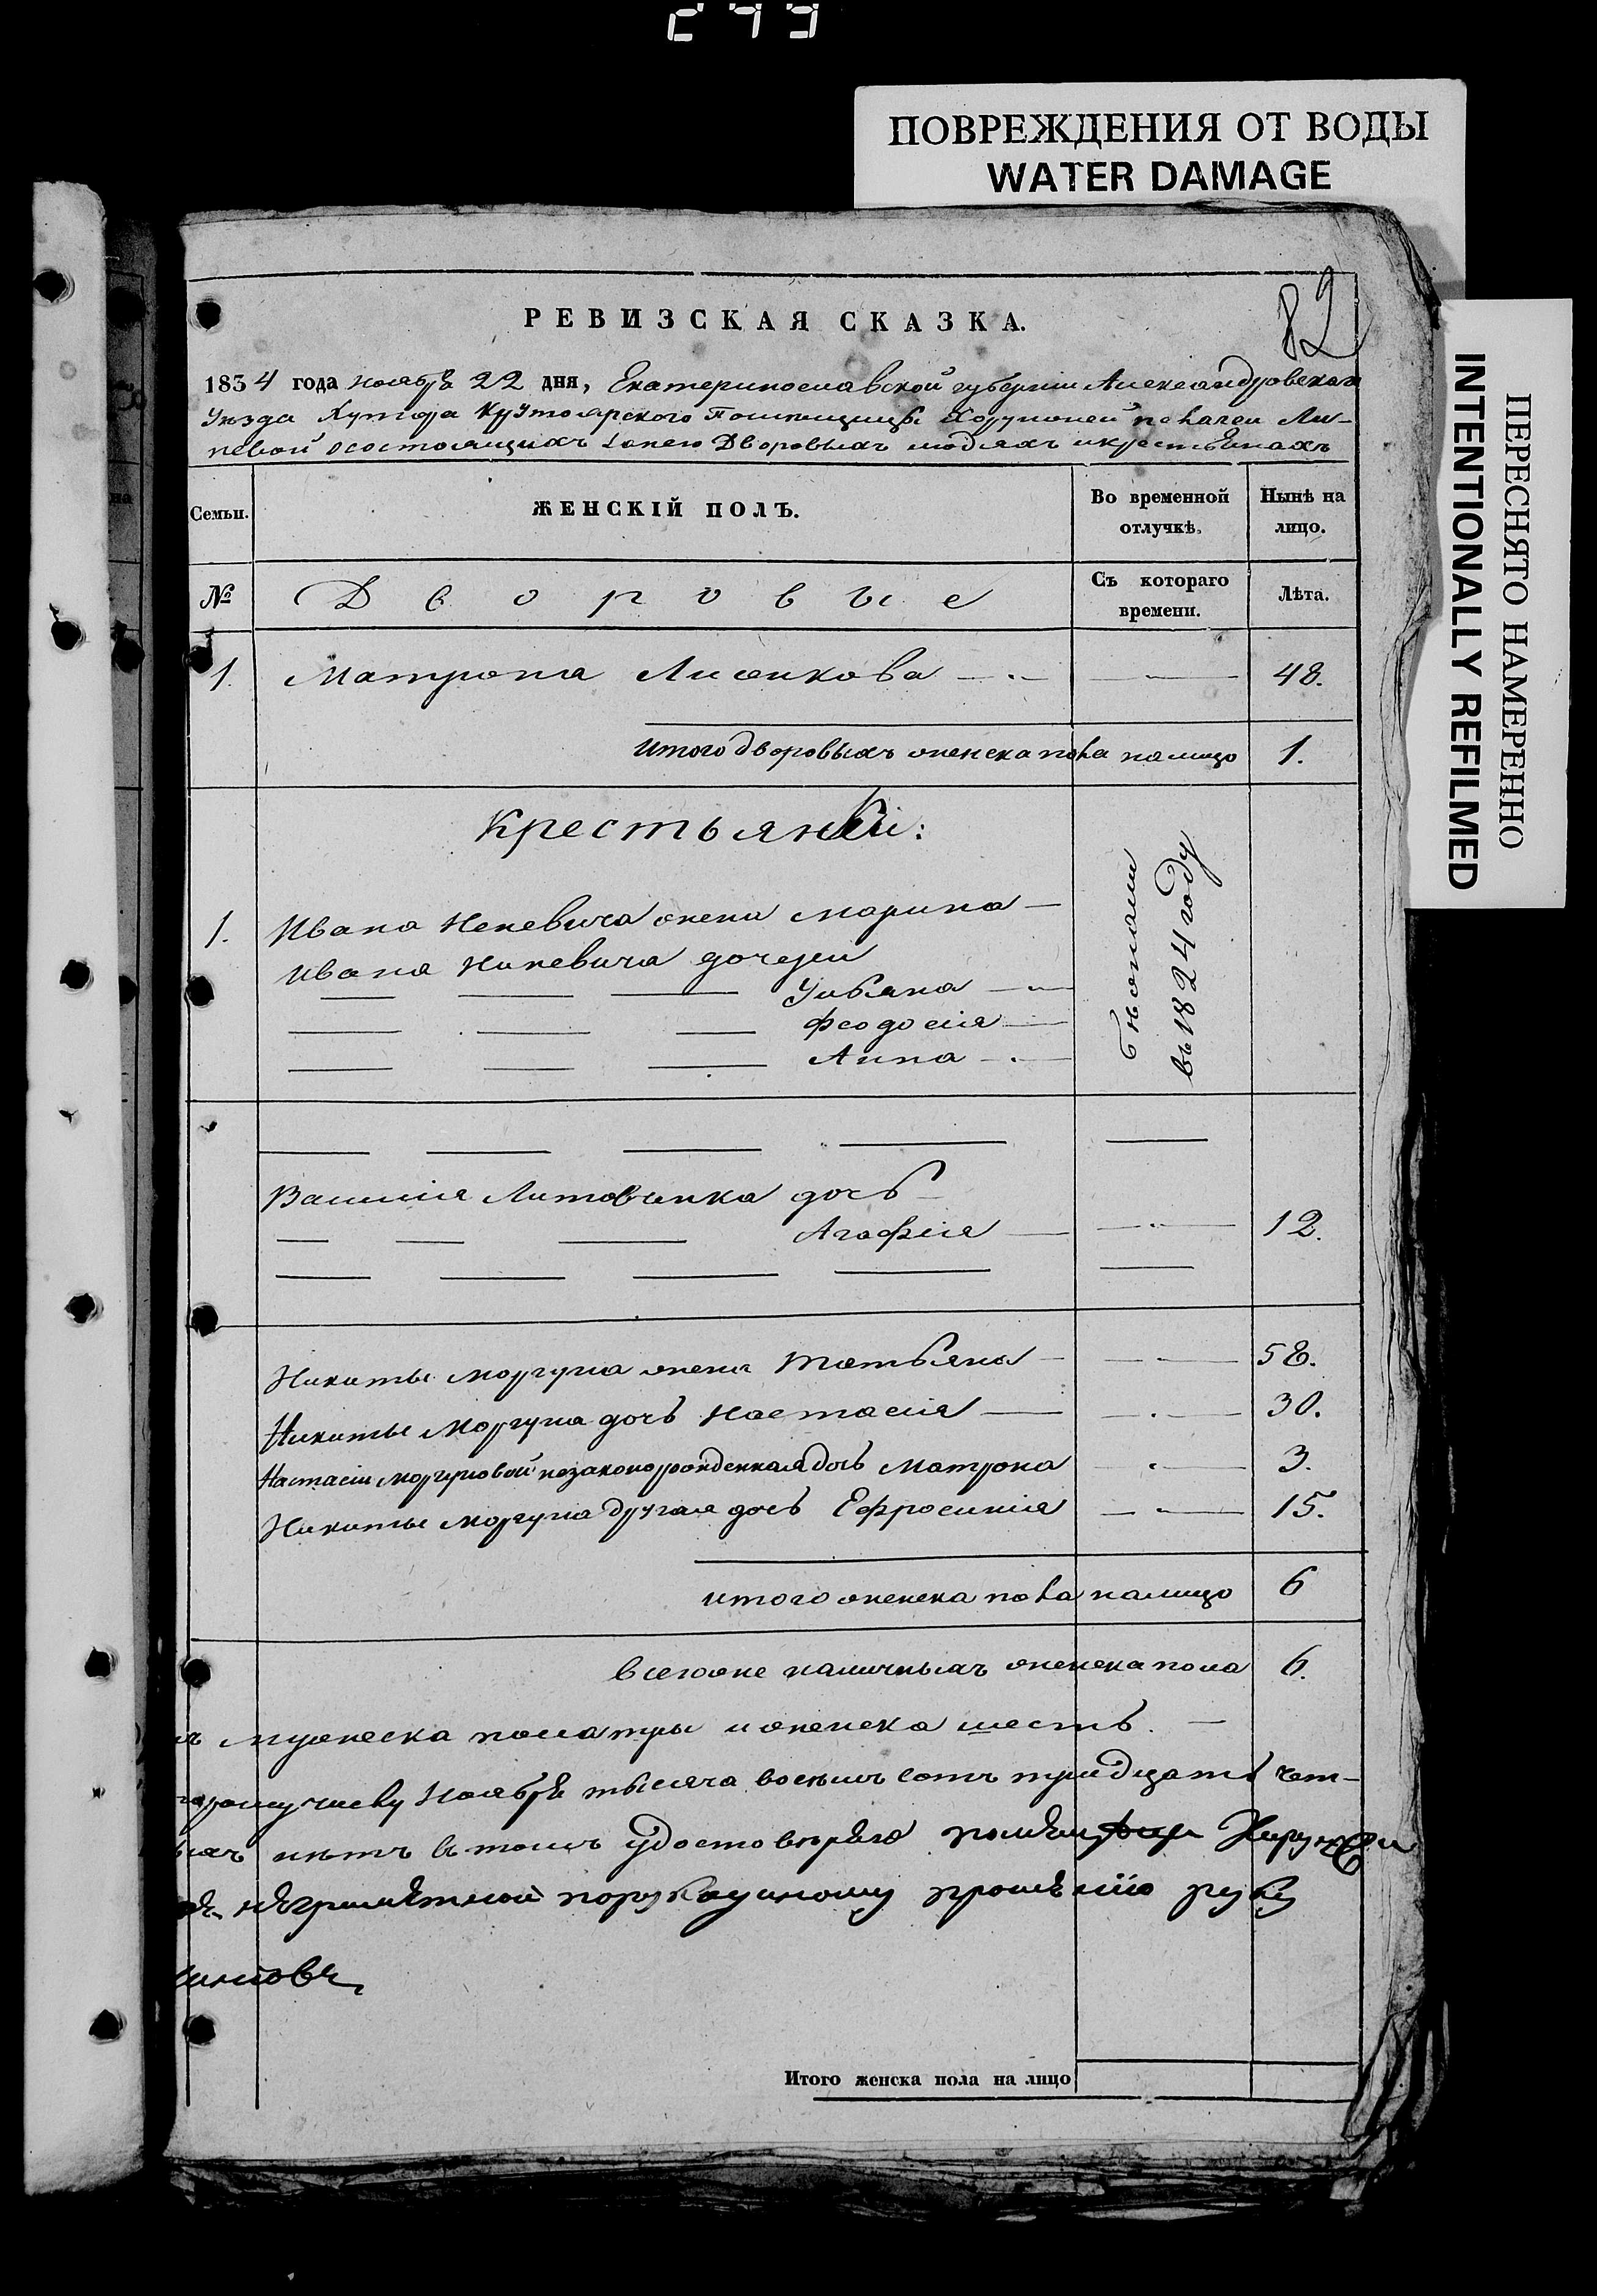 299
ПОВРЕЖДЕНИЯ ОТ ВОДЫ
WATER DAMAGE
ПЕРЕСНЯТО НАМЕРЕННО
INTENTIONALLY REFILMED
82
РЕВИЗСКАЯ СКАЗКА.
1834 года ноября 22 дня, Екатеринославской губернии Александровскаго
уезда Хутора Крутоярского Помещицы Хорунжей
осостоящихъ занею Дворовыхъ людяхъ икрестьянахъ
Семьи.
ЖЕНСКІЙ ПОЛЪ.
Во временной отлучкѣ.
Нынѣ на лицо.
№
Дворовые
Съ котораго времени.
Лѣта.
1. Матрона Лисенкова 48.
Итого дворовыхъ женска пола налицо 1.
Крестьяне:
1. Ивана Неневича жена Марина
Ивана Ниневича дочери
Ульяна
Феодосия
Анна
бежали
въ 1824 году
Василия Литовченка дочь
Агафия 12.
Никиты Моргуна жена Татьяна 58.
Никиты Моргуна дочь Настасия 30.
Настасіи Моргуновой незаконорожденная дочь Матрона 3.
Никиты Моргуна другая дочь Ефросиния 15.
итого женска пола налицо 6
Всегоже наличныхъ женска пола 6.
мужеска пола три иженска шесть.
числу Ноября тысяча восемь сотъ тридцать чет-
нетъ втомъ удостоверяю
неграмотной порукоданному прошению руку
Итого женска пола на лицо